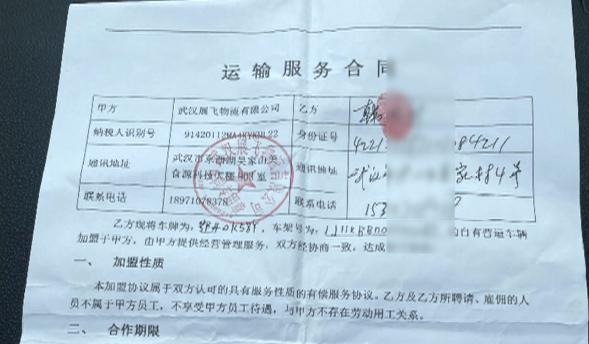 运输服务合同
甲方 武汉展飞物流有限公司 乙方 韩
纳税人识别号 91420112MA4KYKHL22 身份证号 4221 84211
通讯地址 武汉市东西湖吴家山关 通讯地址 武汉 家村4号
食源科技大楼 室
联系电话 18971078378 联系电话 153 7
乙方现将车牌为, 车架号为, 的自有营运车辆
加盟于甲方，由甲方提供经营管理服务，双方经协商一致，达成
一、 加盟性质
本加盟协议属于双方认可的具有服务性质的有偿服务协议。乙方及乙方所聘请、雇佣的人
员不属于甲方员工，不享受甲方员工待遇，与甲方不存在劳动用工关系。
二、 合作期限